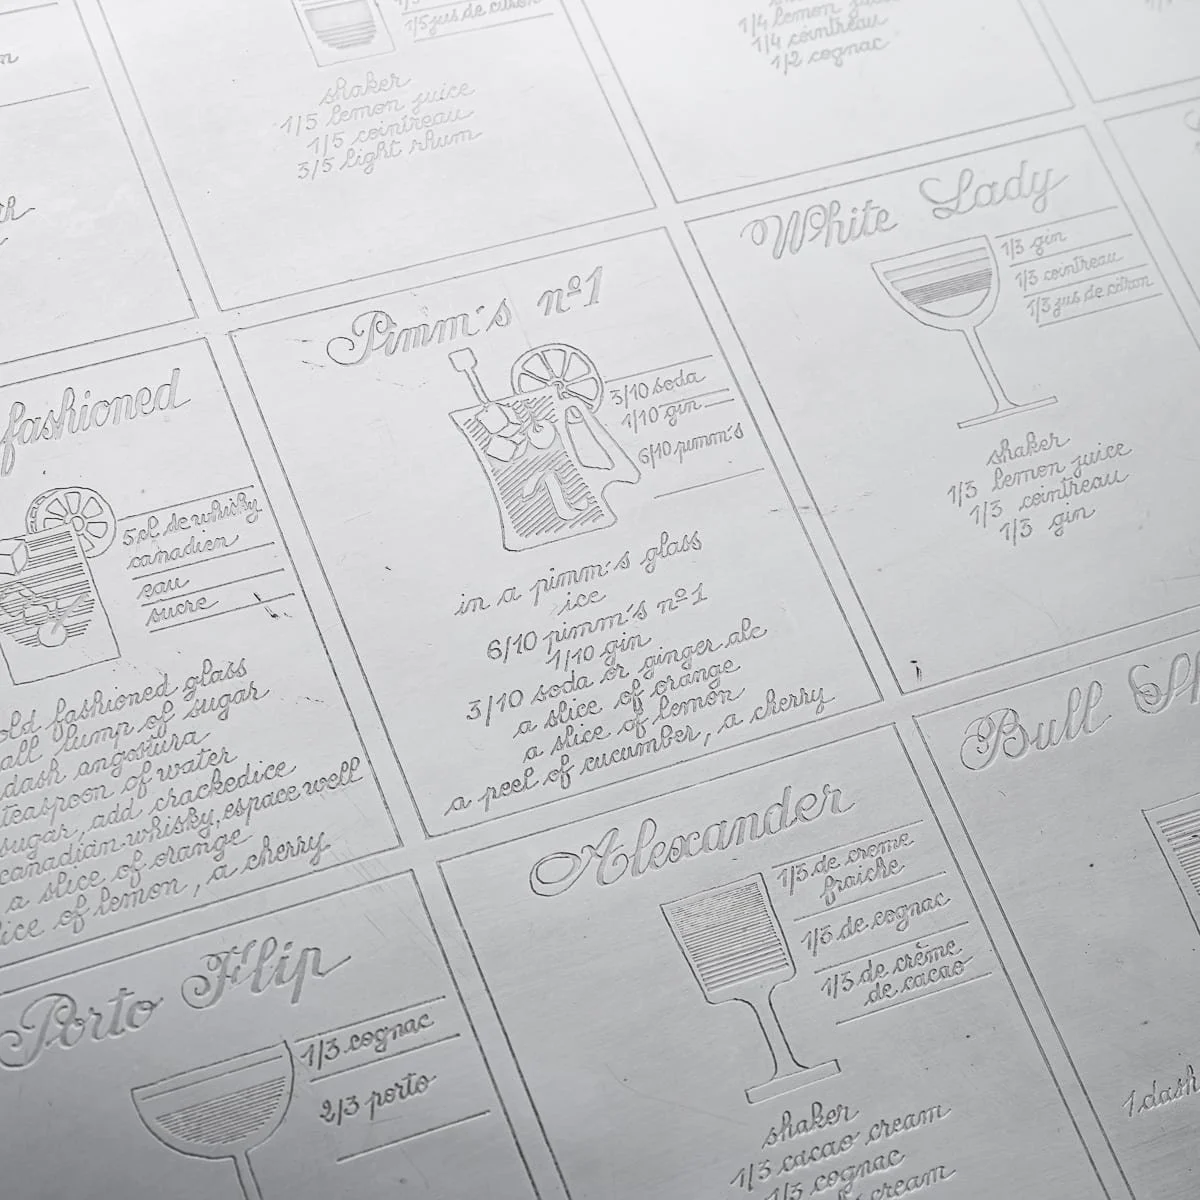 1/5 jus de citron
shaker
1/5 lemon juice
1/5 cointreau
3/5 light rhum
1/4 lemon juice
1/4 cointreau
1/2 cognac
fashioned
5cl de whisky
canadien
eau
sucre
old fashioned glass
lump of sugar
dash angostura
teaspoon of water
sugar, add crackedice
canadian whisky, espace well
a slice of orange
of lemon, a cherry
Pimm's nº1
3/10 soda
1/10 gin
6/10 pimm's
1
in a pimm's glass
ice
6/10 pimm's nº1
1/10 gin
3/10 soda or ginger ale
a slice of orange
a slice of lemon
a peel of cucumber, a cherry
White Lady
1/3 gin
1/3 cointreau
1/3 jus de citron
shaker
1/3 lemon juice
1/3 cointreau
1/3 gin
Porto Flip
1/3 cognac
2/3 porto
Alexander
1/3 de creme
fraiche
1/3 de cognac
1/3 de crème
de cacao
shaker
1/3 cacao cream
1/3 cognac
cream
Bull
1 dash